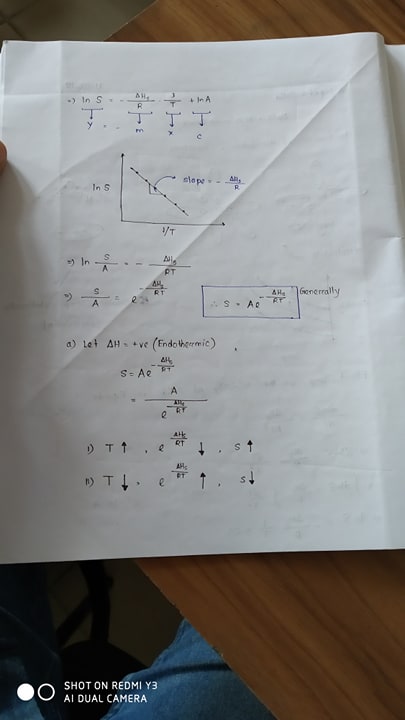 =) ln S = - ΔHs/R · 1/T + ln A
y = - m x c
ln S
slope = - ΔHs/R
1/T
=) ln S/A = - ΔHs/RT
=) S/A = e^(-ΔHs/RT)
∴ S = Ae^(-ΔHs/RT) Generally
a) Let ΔH = +ve (Endothermic)
S = Ae^(-ΔHs/RT)
= A / e^(ΔHs/RT)
i) T ↑ , e^(ΔHs/RT) ↓ , S ↑
ii) T ↓ , e^(ΔHs/RT) ↑ , S ↓
SHOT ON REDMI Y3
AI DUAL CAMERA